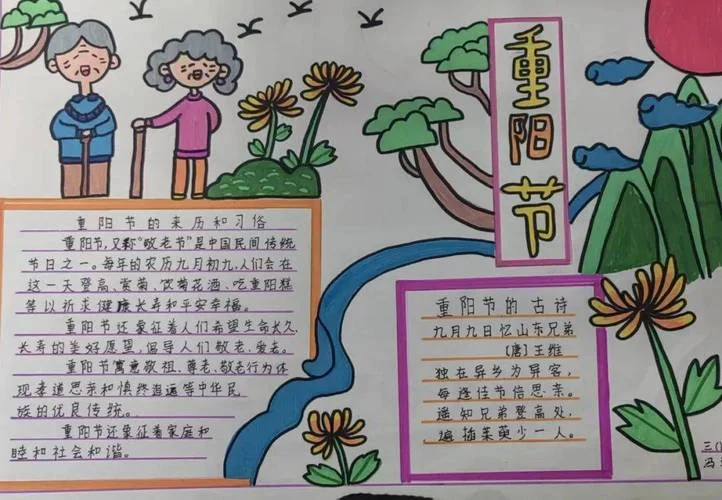 重阳节
重阳节的来历和习俗
重阳节,又称“敬老节”是中国民间传统
节日之一。每年的农历九月初九,人们会在
这一天登高、赏菊、饮菊花酒、吃重阳糕
等以祈求健康长寿和平安幸福。
重阳节还象征着人们希望生命长久,
长寿的美好愿望,倡导人们敬老、爱老。
重阳节寓意敬祖、尊老、敬老行为体
现孝道思亲和慎终追远等中华民
族的优良传统。
重阳节还象征着家庭和
睦和社会和谐。
重阳节的古诗
九月九日忆山东兄弟
〔唐〕王维
独在异乡为异客,
每逢佳节倍思亲。
遥知兄弟登高处,
遍插茱萸少一人。
三(
冯